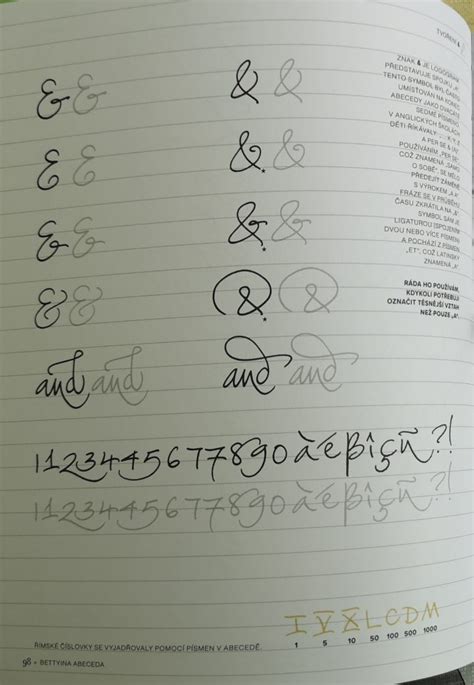 TVOŘENÍ
ZNAK & JE LOGOGRAM,
PŘEDSTAVUJE SPOJKU „A“.
TENTO SYMBOL BYL ČASTO
UMISŤOVÁN NA KONEC
ABECEDY JAKO DVACÁTÉ
SEDMÉ PÍSMENO.
V ANGLICKÝCH ŠKOLÁCH
DĚTI ŘÍKÁVALY: „... X, Y, Z
A PER SE & (A)“.
POUŽÍVÁNÍM „PER SE“,
COŽ ZNAMENÁ „SAMO
O SOBĚ“, SE MĚLO
PŘEDEJÍT ZÁMĚNĚ
S VÝROKEM
FRÁZE SE V PRŮBĚHU
ČASU ZKRÁTILA NA
SYMBOL SÁM JE
LIGATUROU (SPOJENÍM
DVOU NEBO VÍCE PÍSMEN)
A POCHÁZÍ Z PÍSMEN
„ET“, COŽ LATINSKY
ZNAMENÁ „A“.
RÁDA HO POUŽÍVÁM,
KDYKOLI POTŘEBUJI
OZNAČIT TĚSNĚJŠÍ VZTAH
NEŽ POUZE „A“.
& & & &
& & & &
& & & &
& & & &
and and and and
1123445677890àéβîçñ?!
1123445677890àéβîçñ?!
I V X L C D M
1 5 10 50 100 500 1000
ŘÍMSKÉ ČÍSLOVKY SE VYJADŘOVALY POMOCÍ PÍSMEN V ABECEDĚ.
98 • BETTYINA ABECEDA